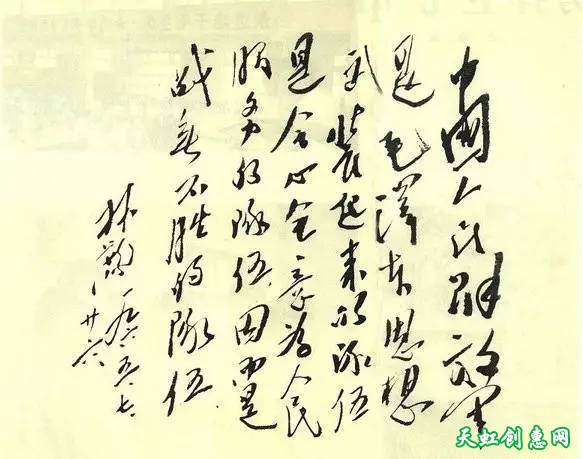 中国人民解放军
是毛泽东思想
武装起来的队伍
是全心全意为人民
服务的队伍,因而是
战无不胜的队伍
林彪 一九六五、七、
廿六
天虹创惠网